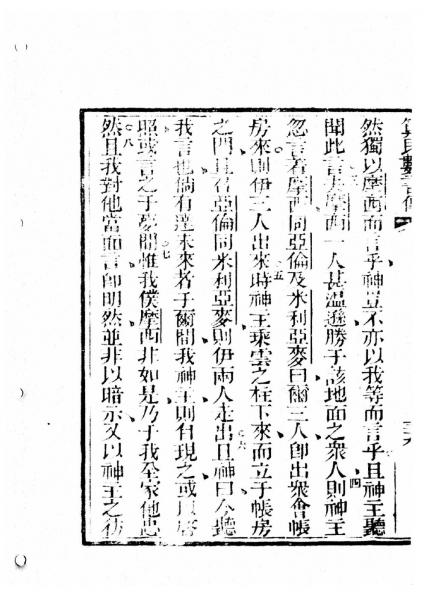 民數
然獨以摩西而言乎神豈不亦以我等而言乎且神主聽
聞此言夫摩西一人甚溫遜勝于該地面之衆人四則神主
忽言着摩西同亞倫及米利亞麥曰爾三人即出衆會帳
房來則伊三人出來五時神主乘雲之柱下來而立于帳房
之門且召亞倫同米利亞麥則伊兩人走出六且神曰今聽
我言也倘有達未來者于爾間我神主則自現之或以啓
照或言之于夢間七惟我僕摩西非如是乃于我全家他忠
然八且我對他當面言即明然並非以暗示又以神主之彷